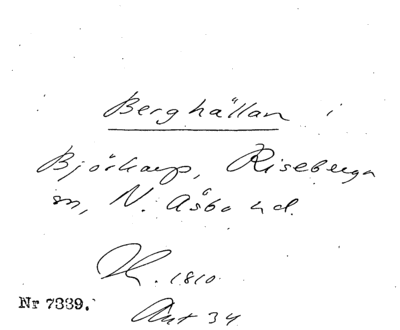 Berghällan i
Björkarp, Riseberga
sn, N. Åsbo hd.
1810.
Nr 7339.
34